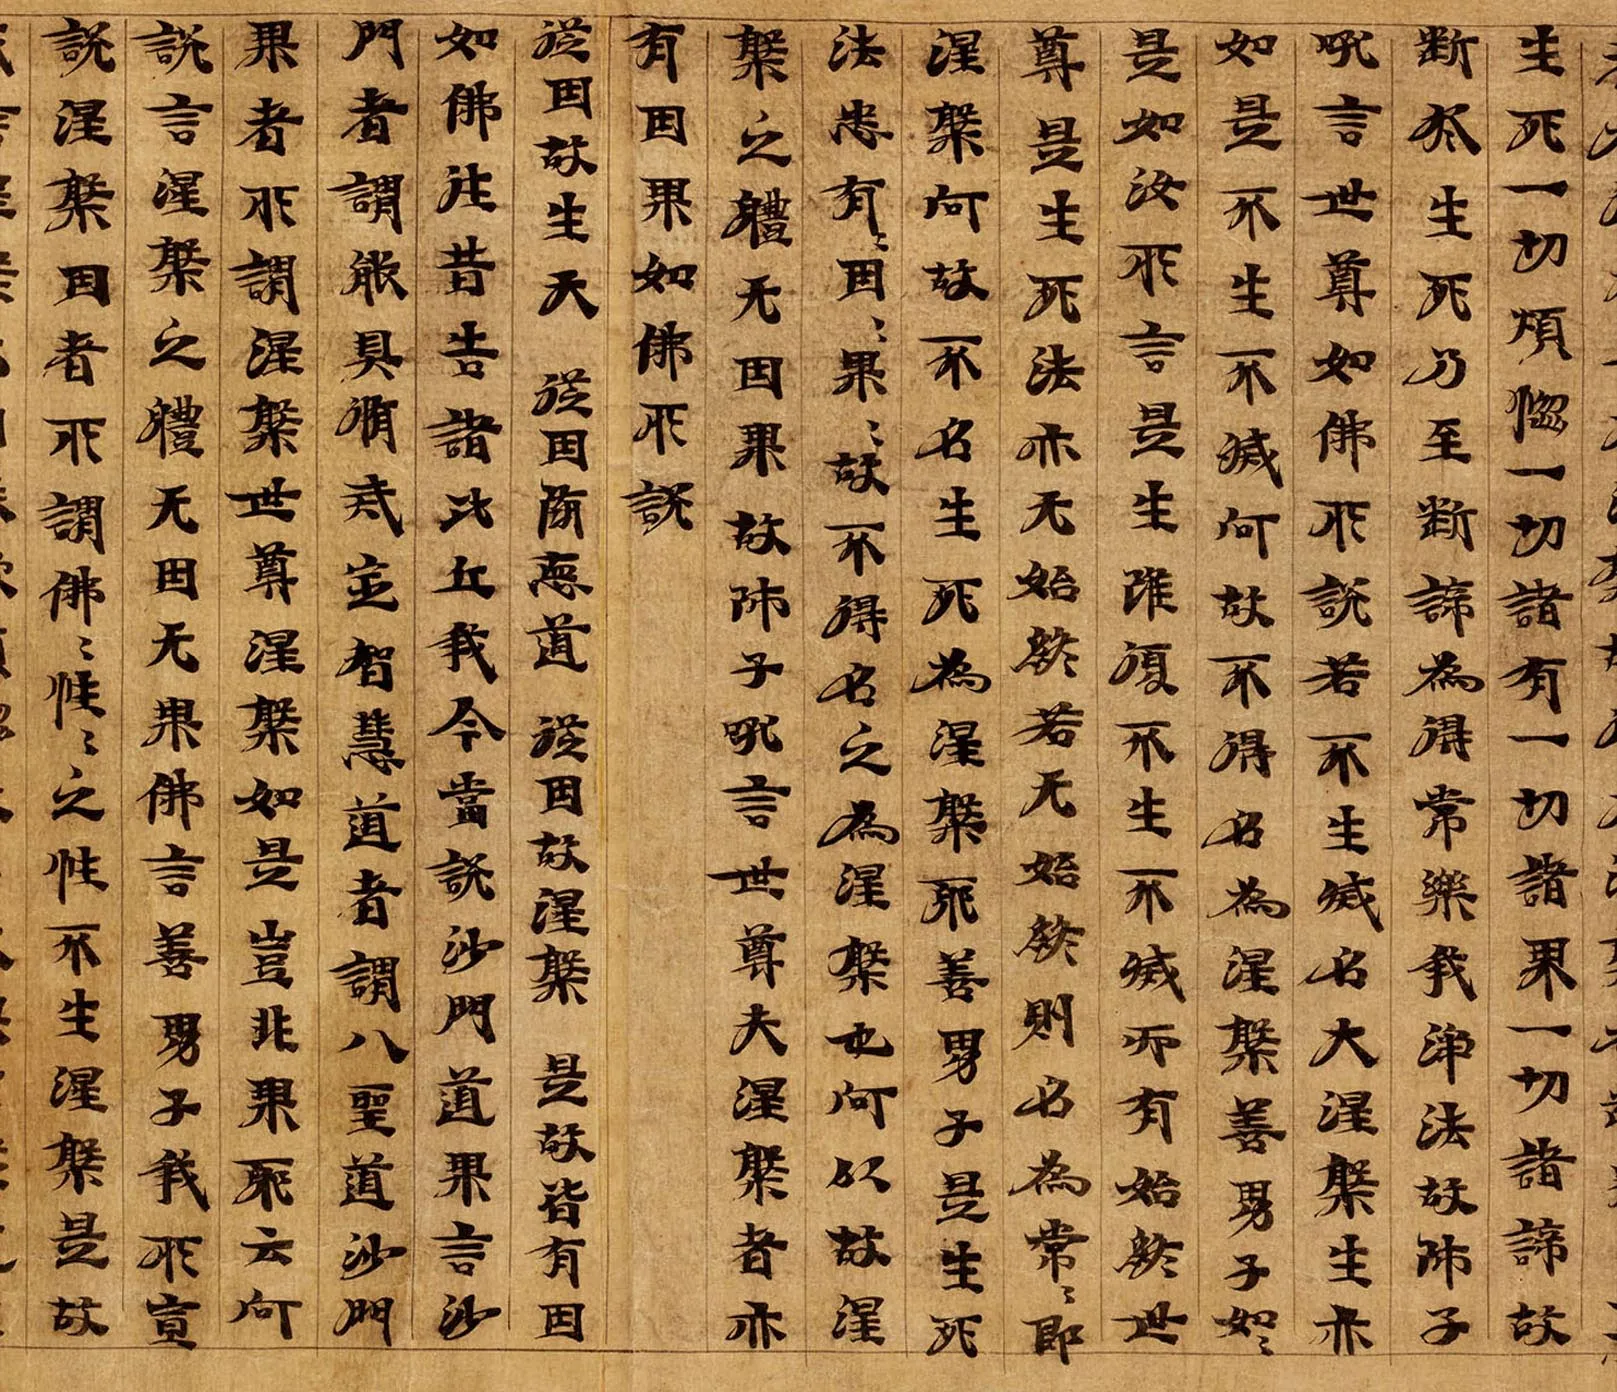 生死一切煩惱一切諸有一切諸果一切諸諦故
断尽生死乃至断諦為得常樂我淨法故師子
吼言世尊如佛所說若不生滅名大涅槃生亦
如是不生不滅何故不得名為涅槃善男子如〻
是如汝所言是生雖復不生不滅而有始終世
尊是生死法亦无始終若无始終則名為常〻即
涅槃何故不名生死為涅槃耶善男子是生死
法悉有〻因〻果〻故不得名之為涅槃也何以故涅
槃之體无因果故師子吼言世尊夫涅槃者亦
有因果如佛所說
從因故生天 從因墮惡道 從因故涅槃 是故皆有因
如佛往昔告諸比丘我今當說沙門道果言沙
門者謂能具脩戒定智慧道者謂八聖道沙門
果者所謂涅槃世尊涅槃如是豈非果耶云何
說言涅槃之體无因无果佛言善男子我所宣
說涅槃因者所謂佛〻性〻之性不生涅槃是故